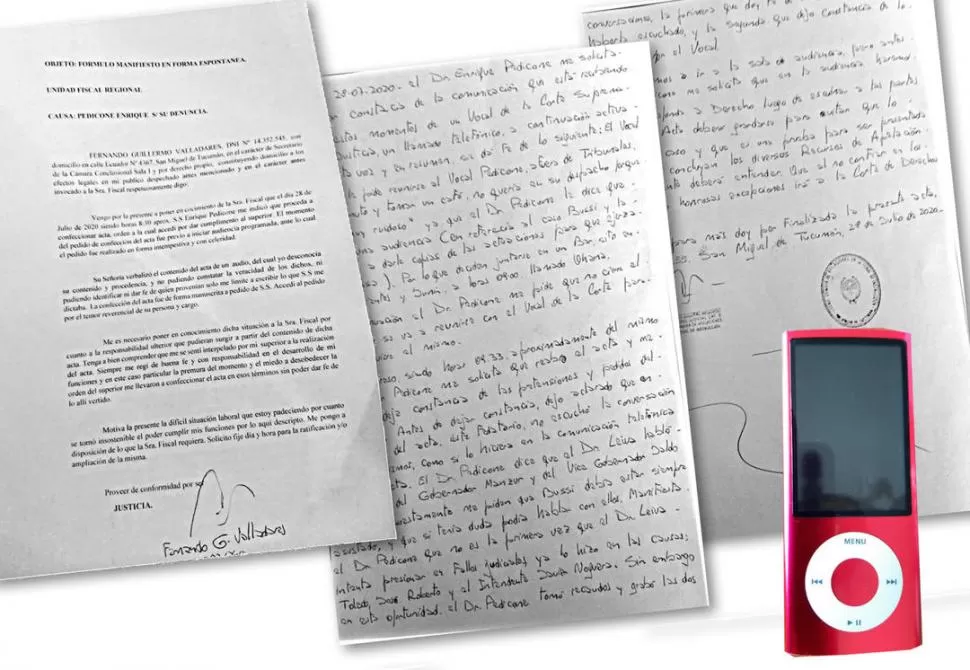 OBJETO: FORMULO MANIFIESTO EN FORMA ESPONTANEA.
UNIDAD FISCAL REGIONAL
CAUSA: PEDICONE ENRIQUE S/ SU DENUNCIA.
FERNANDO GUILLERMO VALLADARES, DNI Nº 14.352.545, con
domicilio en calle Ecuador Nº 4367, San Miguel de Tucumán, en el carácter de Secretario
de la Cámara Conclusional Sala I y por derecho propio, constituyendo domicilio a los
efectos legales en mi público despachado antes mencionado y en el carácter antes
invocado a la Sra. Fiscal respetuosamente digo:
Vengo por la presente a poner en cocimiento de la Sra. Fiscal que el día 28 de
Julio de 2020 siendo horas 8:30 aprox. S.S. Enrique Pedicone me indicó que proceda a
confeccionar acta, orden a la cual accedí por dar cumplimiento al superior. El momento
del pedido de confección del acta fue previo a iniciar audiencia programada, ante lo cual
el pedido fue realizado en forma intempestiva y con celeridad.
Su Señoría verbalizó el contenido del acta de un audio, del cual yo desconocía
su contenido y procedencia, y no pudiendo constatar la veracidad de los dichos, ni
pudiendo identificar ni dar fe de quien provenían solo me limite a escribir lo que S.S me
dictaba. La confección del acta fue de forma manuscrita a pedido de S.S. Accedí al pedido
por el temor reverencial de su persona y cargo.
Me es necesario poner en conocimiento dicha situación a la Sra. Fiscal por
cuanto a la responsabilidad ulterior que pudieran surgir a partir del contenido de dicha
acta. Tenga a bien comprender que me se sentí interpelado por mi superior a la realización
del acta. Siempre me regí de buena fe y con responsabilidad en el desarrollo de mi
funciones y en este caso particular la premura del momento y el miedo a desobedecer la
orden del superior me llevaron a confeccionar el acta en esos términos sin poder dar fe de
lo allí vertido.
Motiva la presente la difícil situación laboral que estoy padeciendo por cuanto
se tornó insostenible el poder cumplir mis funciones por lo aquí descripto. Me pongo a
disposición de lo que la Sra. Fiscal requiera. Solicito fije día y hora para la ratificación y/o
ampliación de la misma.
Proveer de conformidad por ser
JUSTICIA.
Fernando G. Valladares
28-07-2020- el Dr. Enrique Pedicone me solicita
constancia de la comunicación que está recibiendo
estos momentos de un Vocal de la Corte Suprema
Justicia, un llamado telefónico, a continuación activa
voz y en resumen, se da Fe de lo siguiente: El Vocal
pide reunirse al Vocal Pedicone, afuera de Tribunales,
y toman un café, no quería en su despacho porque
ruidoso" ya que el Dr. Pedicone le dice que
una audiencia. Con referencia al caso Bussi y la
a darle copias de las actuaciones para que
). Por lo que deciden juntarse en un Bar, sito en
y Junín, a horas 09:00, llamado Whana.
el Dr. Pedicone me pide que no cierre el
se va a reunir con el Vocal de la Corte para
el mismo.
siendo horas 09.33, aproximadamente del mismo
Pedicone me solicita que reabra el acta y me
deja constancia de las pretensiones y pedidos del
Antes de dejar constancia, dejo aclarado que en
del acta, este Fedatario, no escuchó la conversación
como si lo hiciera en la comunicación telefónica
El Dr. Pedicone dice que el Dr. Leiva habló
del Gobernador Manzur y del Vice Gobernador Jaldo
me pidan que Bussi debía estar siempre
asustado, y que si tenía duda podía hablar con ellos. Manifiesta
el Dr. Pedicone que no es la primera vez que el Dr. Leiva
intenta presionar en Fallos judiciales, ya lo hizo en las causas:
Toledo, José Roberto y al Intendente Darío Noguera. Sin embargo
en esta oportunidad, el Dr. Pedicone tomó recaudos y grabó las dos
conversaciones, la primera que doy Fe de
haberla escuchado, y la Segunda que dejo Constancia de lo
el Vocal.
a ir a la sala de audiencia, pero antes
me solicita que en la audiencia haremos
a Derecho luego de escuchar a las partes
Acta deberé guardarla para evitar que lo
y que es una prueba para ser presentada
concluyan los diversos Recursos de Apelación
deberá entender. Que al no confiar en los
honrosas excepciones irá a la Corte de Derechos
para más doy por Finalizada la presente acta,
San Miguel de Tucumán, 28 de Julio de 2020.
MENU